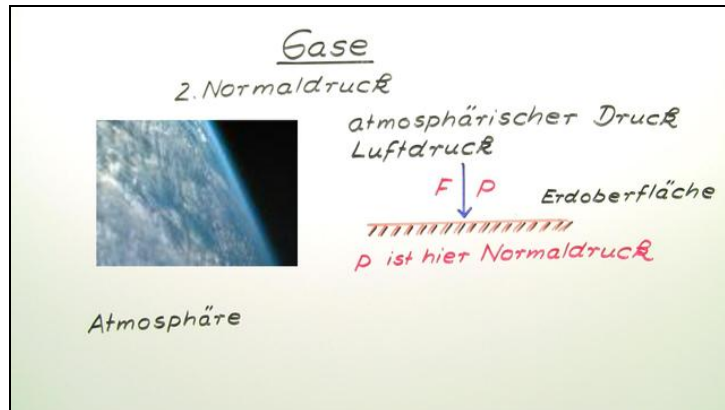 Gase
2. Normaldruck
atmosphärischer Druck
Luftdruck
F p
Erdoberfläche
p ist hier Normaldruck
Atmosphäre